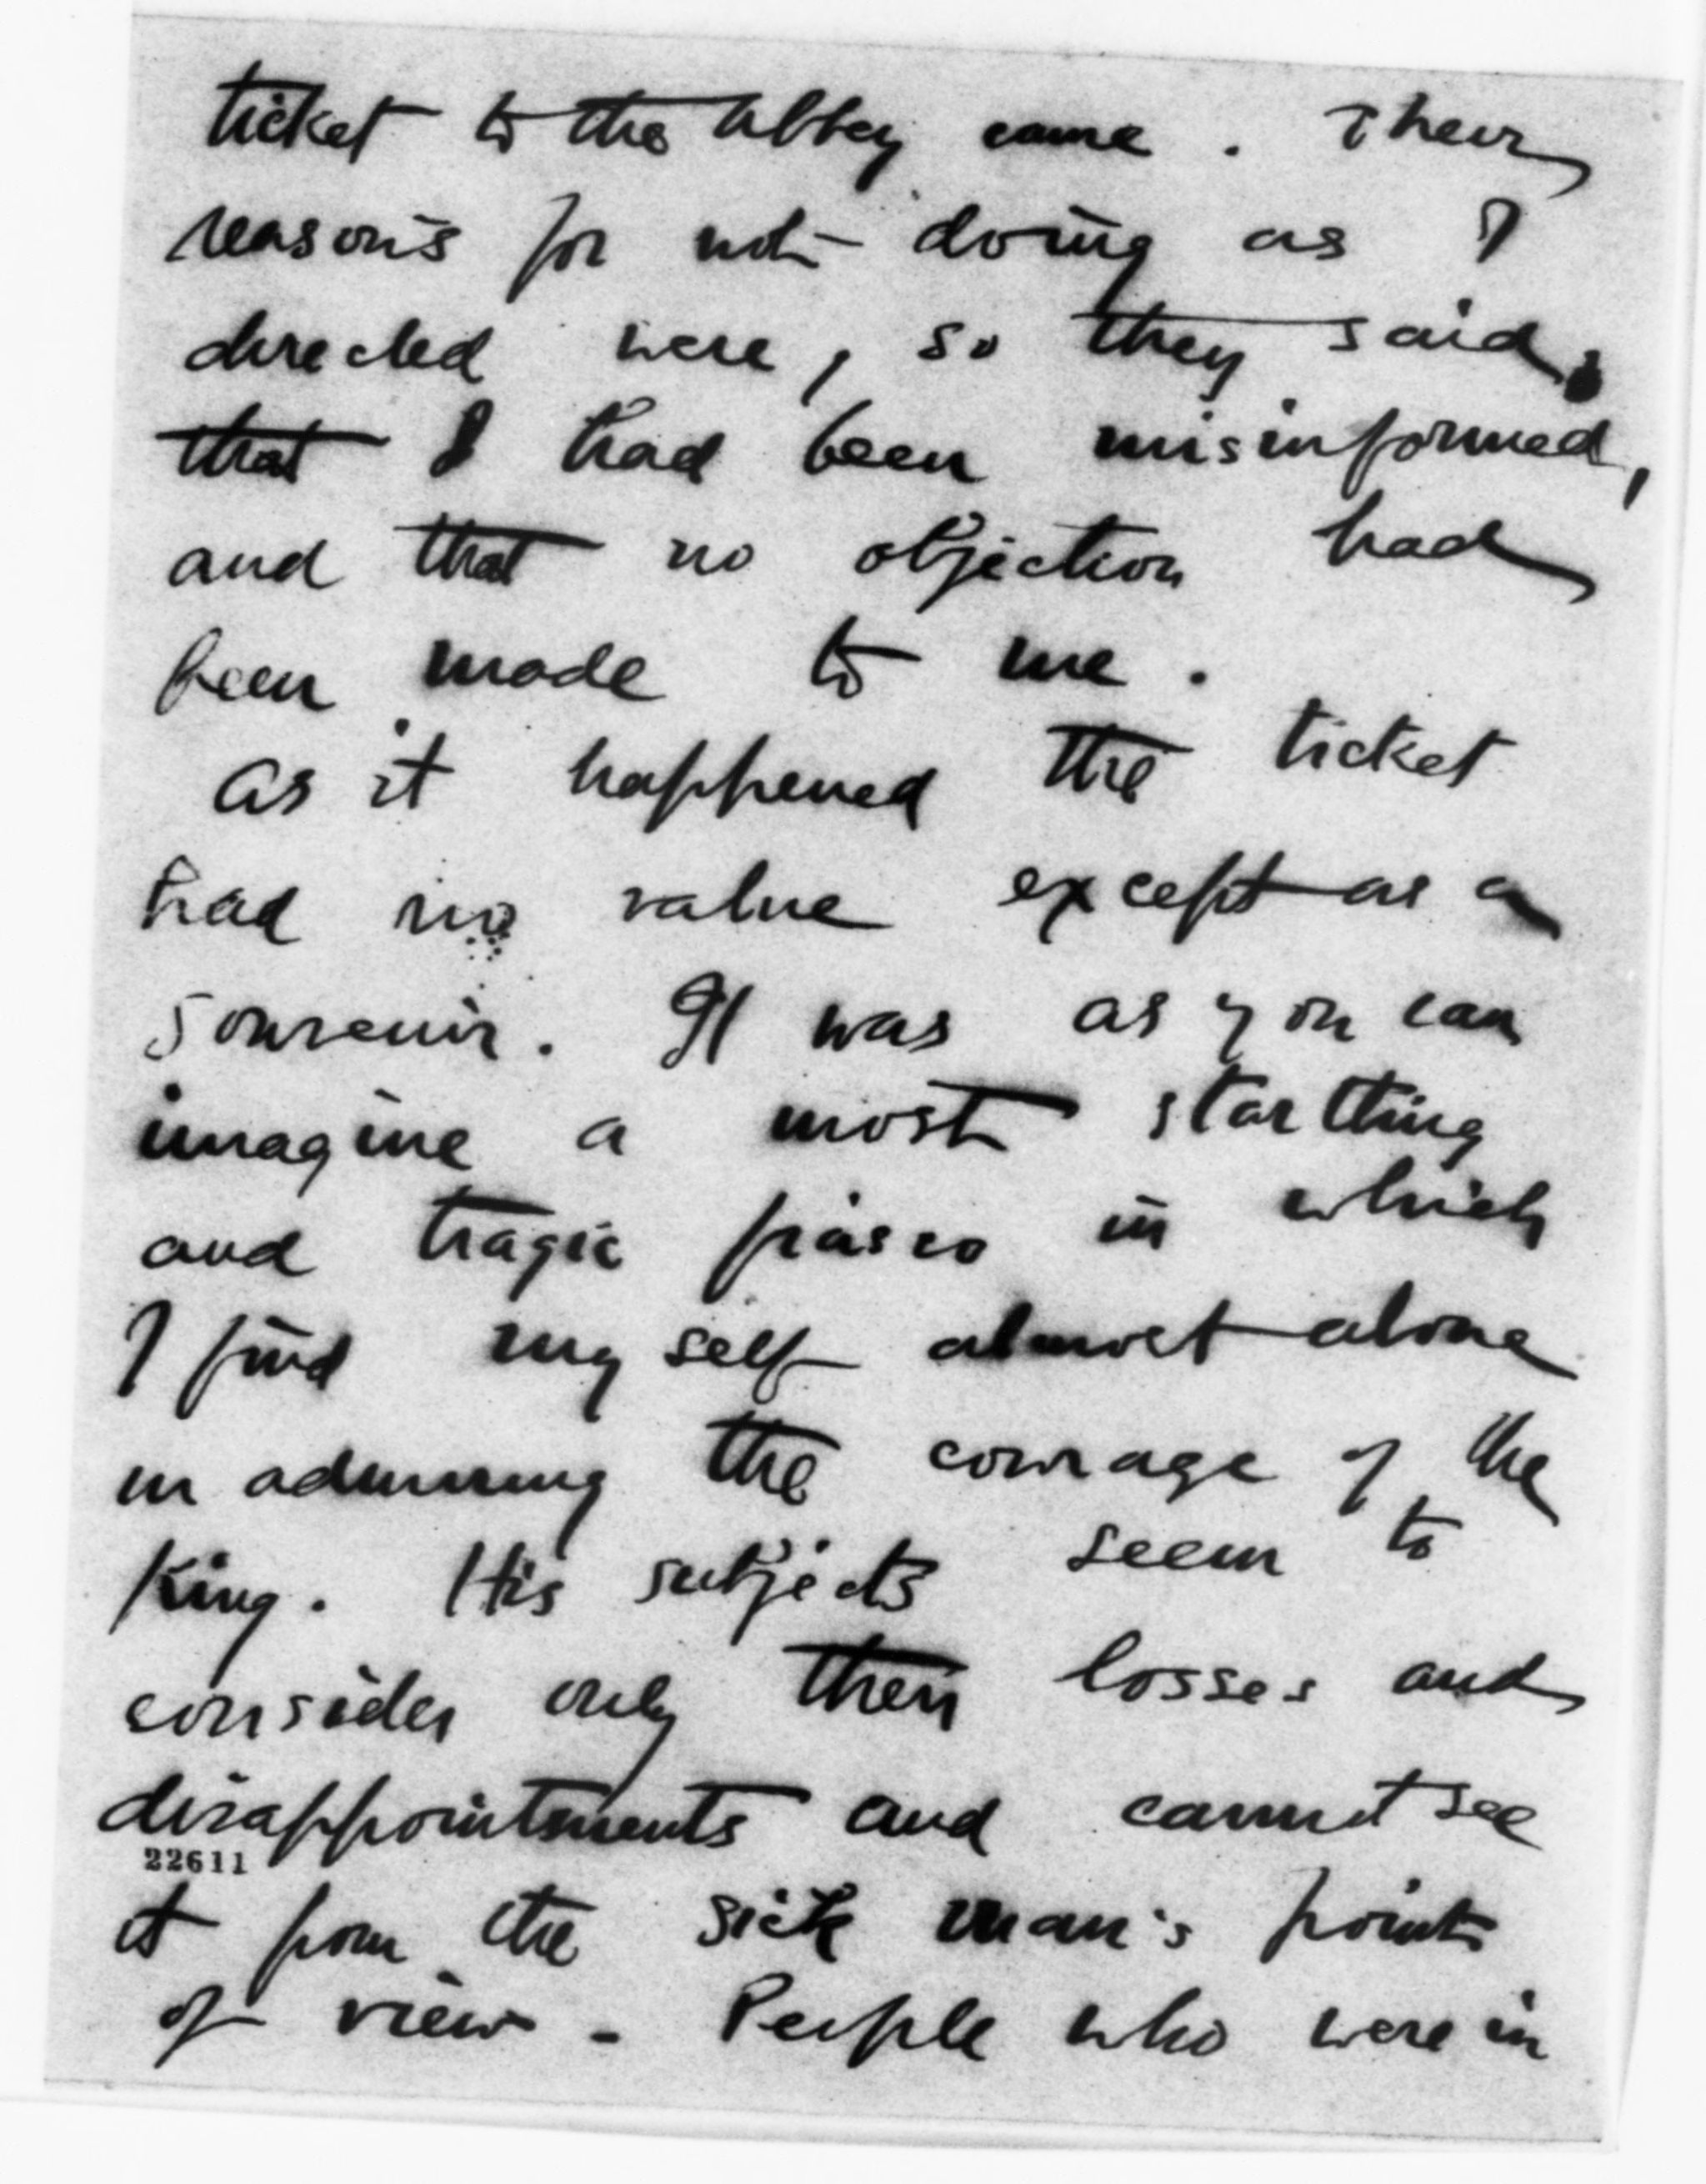 ticket to the Abbey came. Their
reasons for not doing as I
directed were, so they said,
that I had been misinformed,
and that no objection had
been made to me.
As it happened the ticket
had no value except as a
souvenir. It was as you can
imagine a most startling
and tragic fiasco in which
I find myself almost alone
in admiring the courage of the
King. His subjects seem to
consider only their losses and
disappointments and cannot see
22611
it from the sick man's point
of view - People who were in